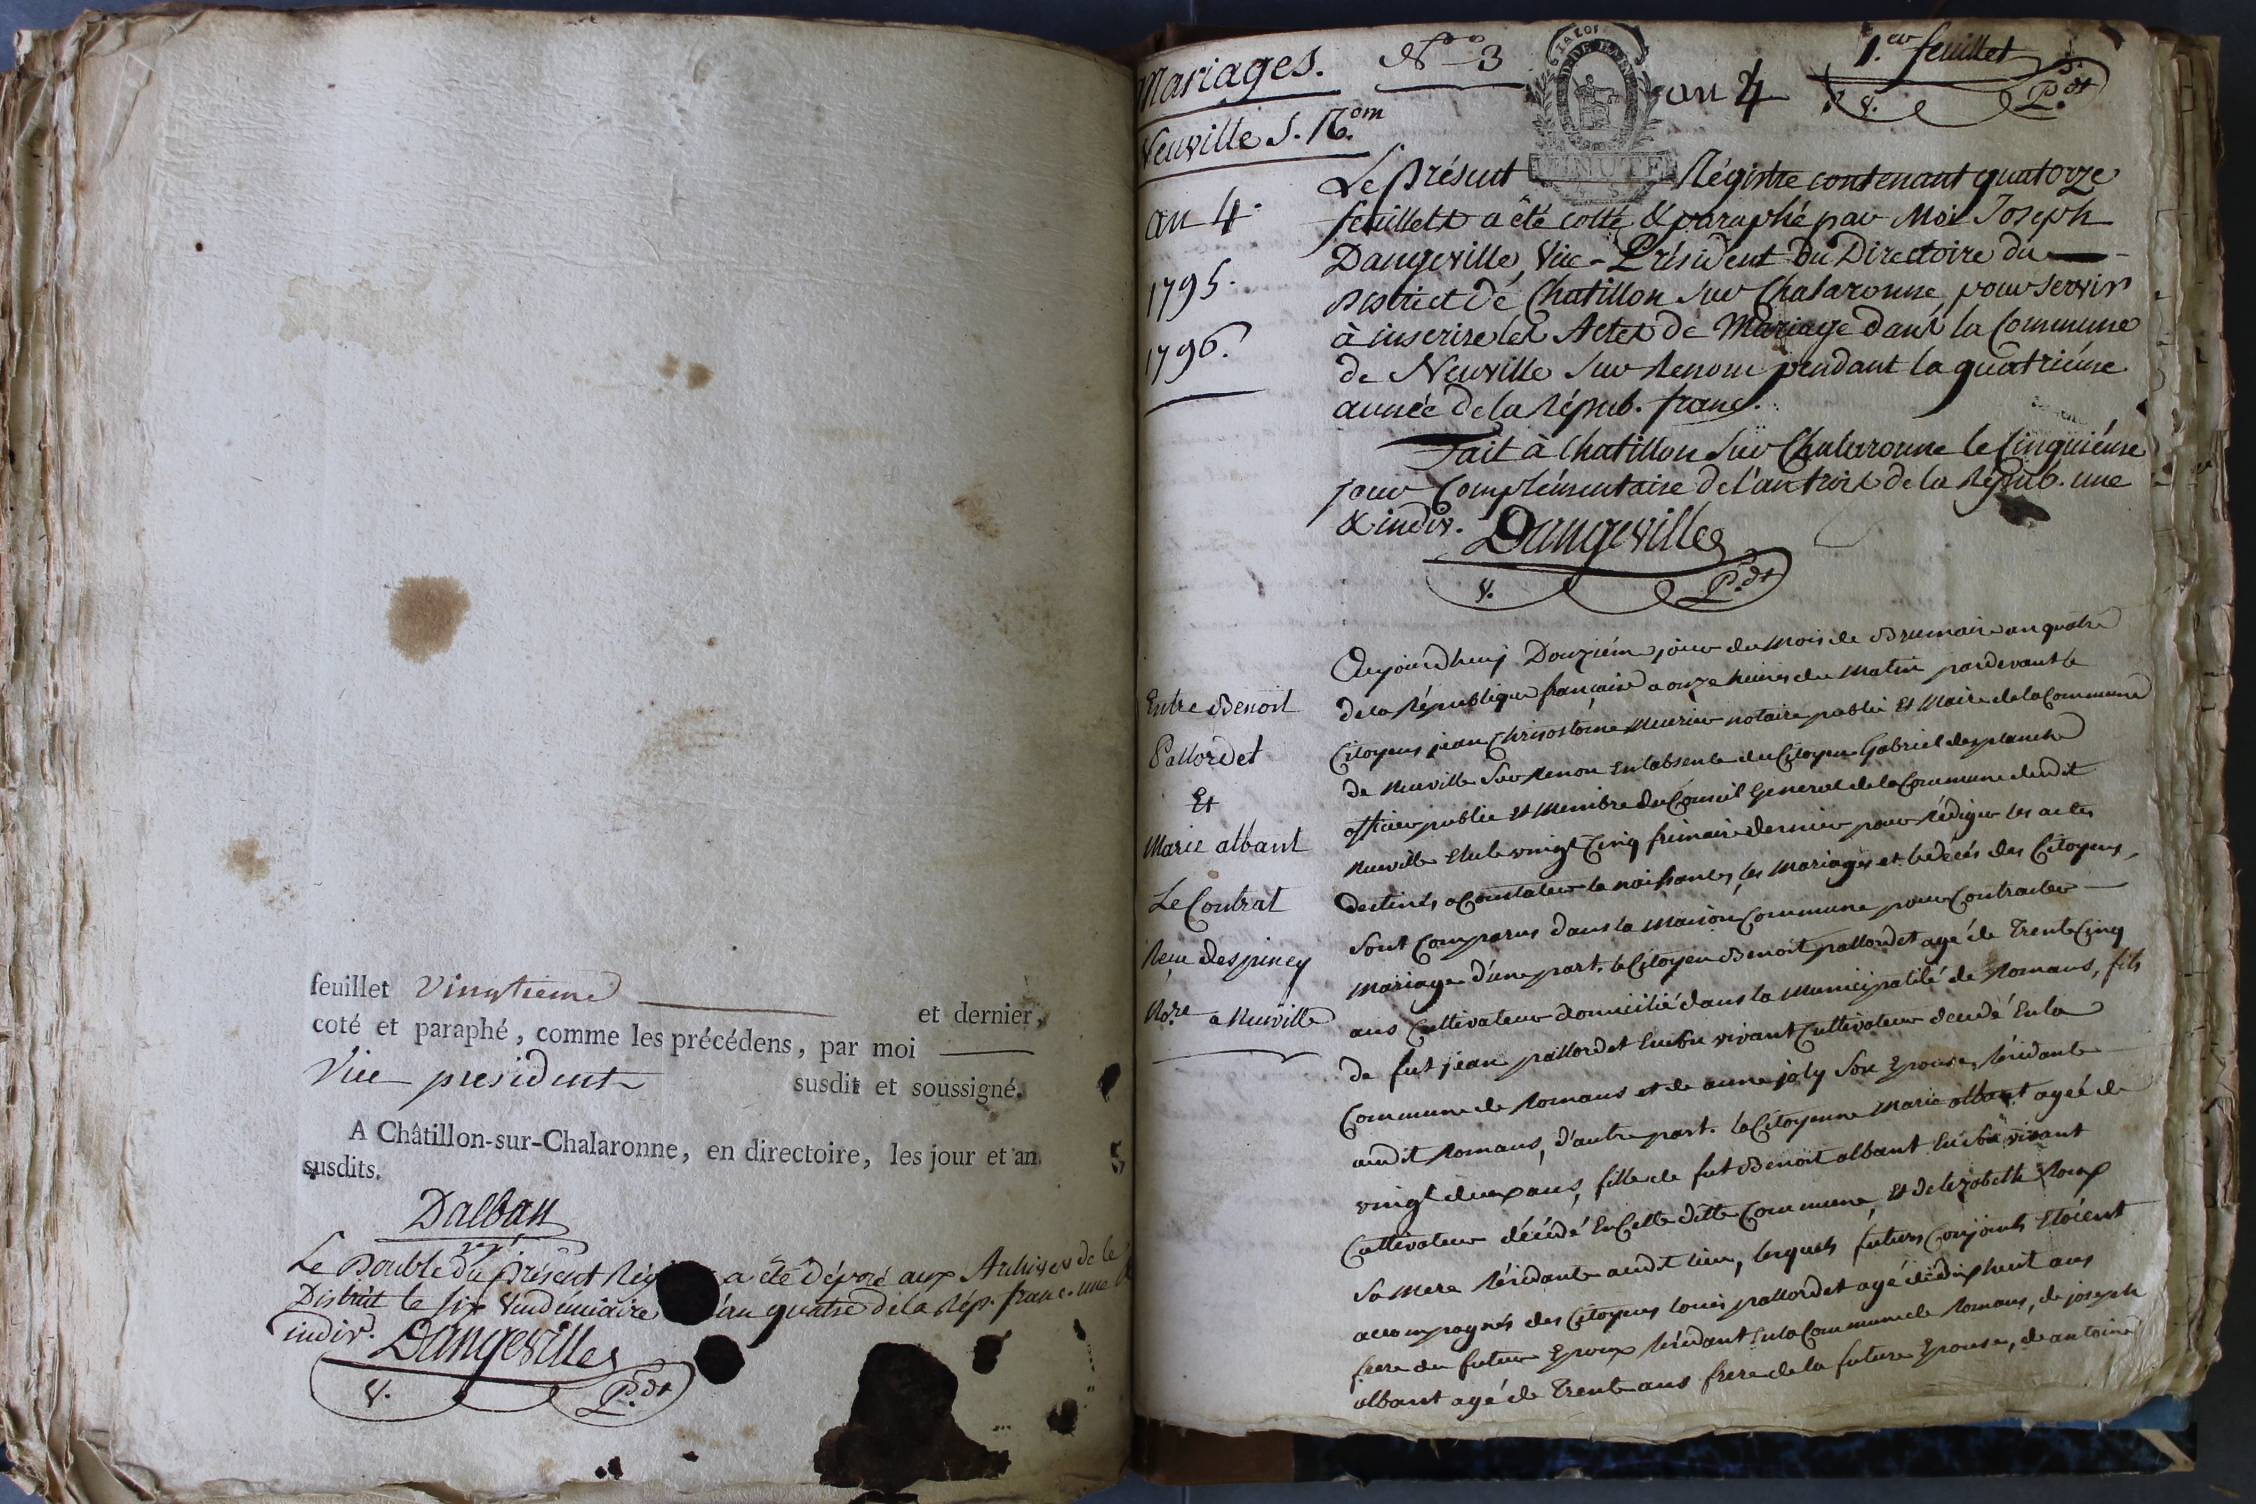 feuillet vingtieme et dernier,
coté et paraphé, comme les précédens, par moi
Vice president susdit et soussigné.
A Châtillon-sur-Chalaronne, en directoire, les jour et an
susdits.
Dalban
Le Double du présent Reg a été déposé aux Archives de le
District le six Vendémiaire l'an quatre de la Rép. franc. une &
indiv. Dangeville
V. P.dt
Mariages.
Neuville S. R.om
an 4.
1795.
1796.
Entre Benoit
Pallordet
Et
Marie albant
Le Contrat
Reçu despiney
No.re a Neuville
N.o 3
MINUTE
an 4
1.er feuillet
V. P.dt
Le Présent Régistre contenant quatorze
feuillets a été cotté & paraphé par Moi Joseph
Dangeville, Vice-Président du Directoire du
District de Chatillon sur Chalaronne, pour servir
à inscrire les Actes de Mariage dans la Commune
de Neuville sur Renom pendant la quatriéme
année de la Répub. franç.
Fait à Chatillon sur Chalaronne le Cinquiéme
jour Complémentaire de l'an trois de la Répub. une
& indiv. Dangeville
V. P.dt
Aujourdhuy Douziéme jour du Mois de Brumaire an quatre
de la République française a onze heures du Matin pardevant le
Citoyens jean Chrisostome Meurier notaire public Et Maire de la Commune
de Neuville Sur Renon En l'absence du Citoyen Gabriel desplanche
officier public et Membre du Conseil General de la Commune dudit
Neuville Elu le vingt Cinq frimaire dernier pour Rédiger les actes
destinés a Constater les naissances, les Mariages et le décés des Citoyens,
Sont Comparus dans la Maison Commune pour Contracter
Mariage d'une part. le Citoyen Benoit pallordet agé de Trente Cinq
ans Cultivateur domicilié dans la Municipalité de Romans, fils
de fut jean pallordet Lui vivant Cultivateur décédé En la
Commune de Romans et de anne joly Son Epouse, Résidante
audit Romans, d'autre part. la Citoyenne Marie albant agée de
vingt deux ans, fille de fut Benoit albant vivant
Cultivateur décédé En Cette ditte Commune, Et d'elizabeth Roux
Sa Mere Résidante audit lieu, lesquels futurs Conjoints Etoient
accompagnés des Citoyens louis pallordet agé de dixhuit ans
frere du futur Epoux Résidant En la Commune de Romans, de joseph
albant agé de Trente ans frere de la future Epouse, de antoine